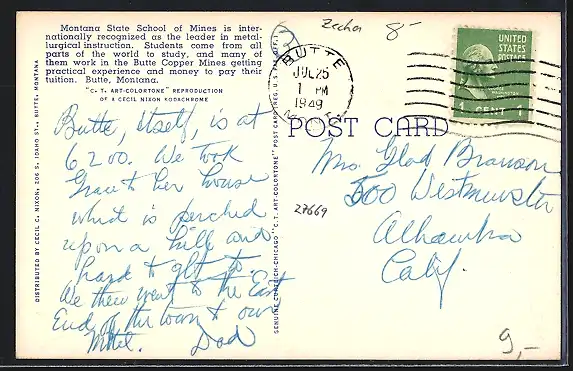 Montana State School of Mines is inter-
nationally recognized as the leader in metal-
lurgical instruction. Students come from all
parts of the world to study, and many of
them work in the Butte Copper Mines getting
practical experience and money to pay their
tuition. Butte, Montana.
"C. T. ART-COLORTONE" REPRODUCTION
OF A CECIL NIXON KODACHROME
Butte, itself, is at
6200. We took
Grace to her house
what is perched
upon a hill and
hard to get to.
We then went to the East
End of the town & our
Mtel. Dad
DISTRIBUTED BY CECIL C. NIXON, 206 S. IDAHO ST., BUTTE, MONTANA
GENUINE CURTEICH-CHICAGO "C. T. ART-COLORTONE" POST CARD (REG. U.S. PAT. OFF.)
8-
BUTTE
JUL 25
1 PM
1949
UNITED
STATES
POSTAGE
GEORGE
WASHINGTON
1 CENT 1
POST CARD
Mrs. Glad Branson
500 Westminster
Alhambra
Calif.
27669
9,-